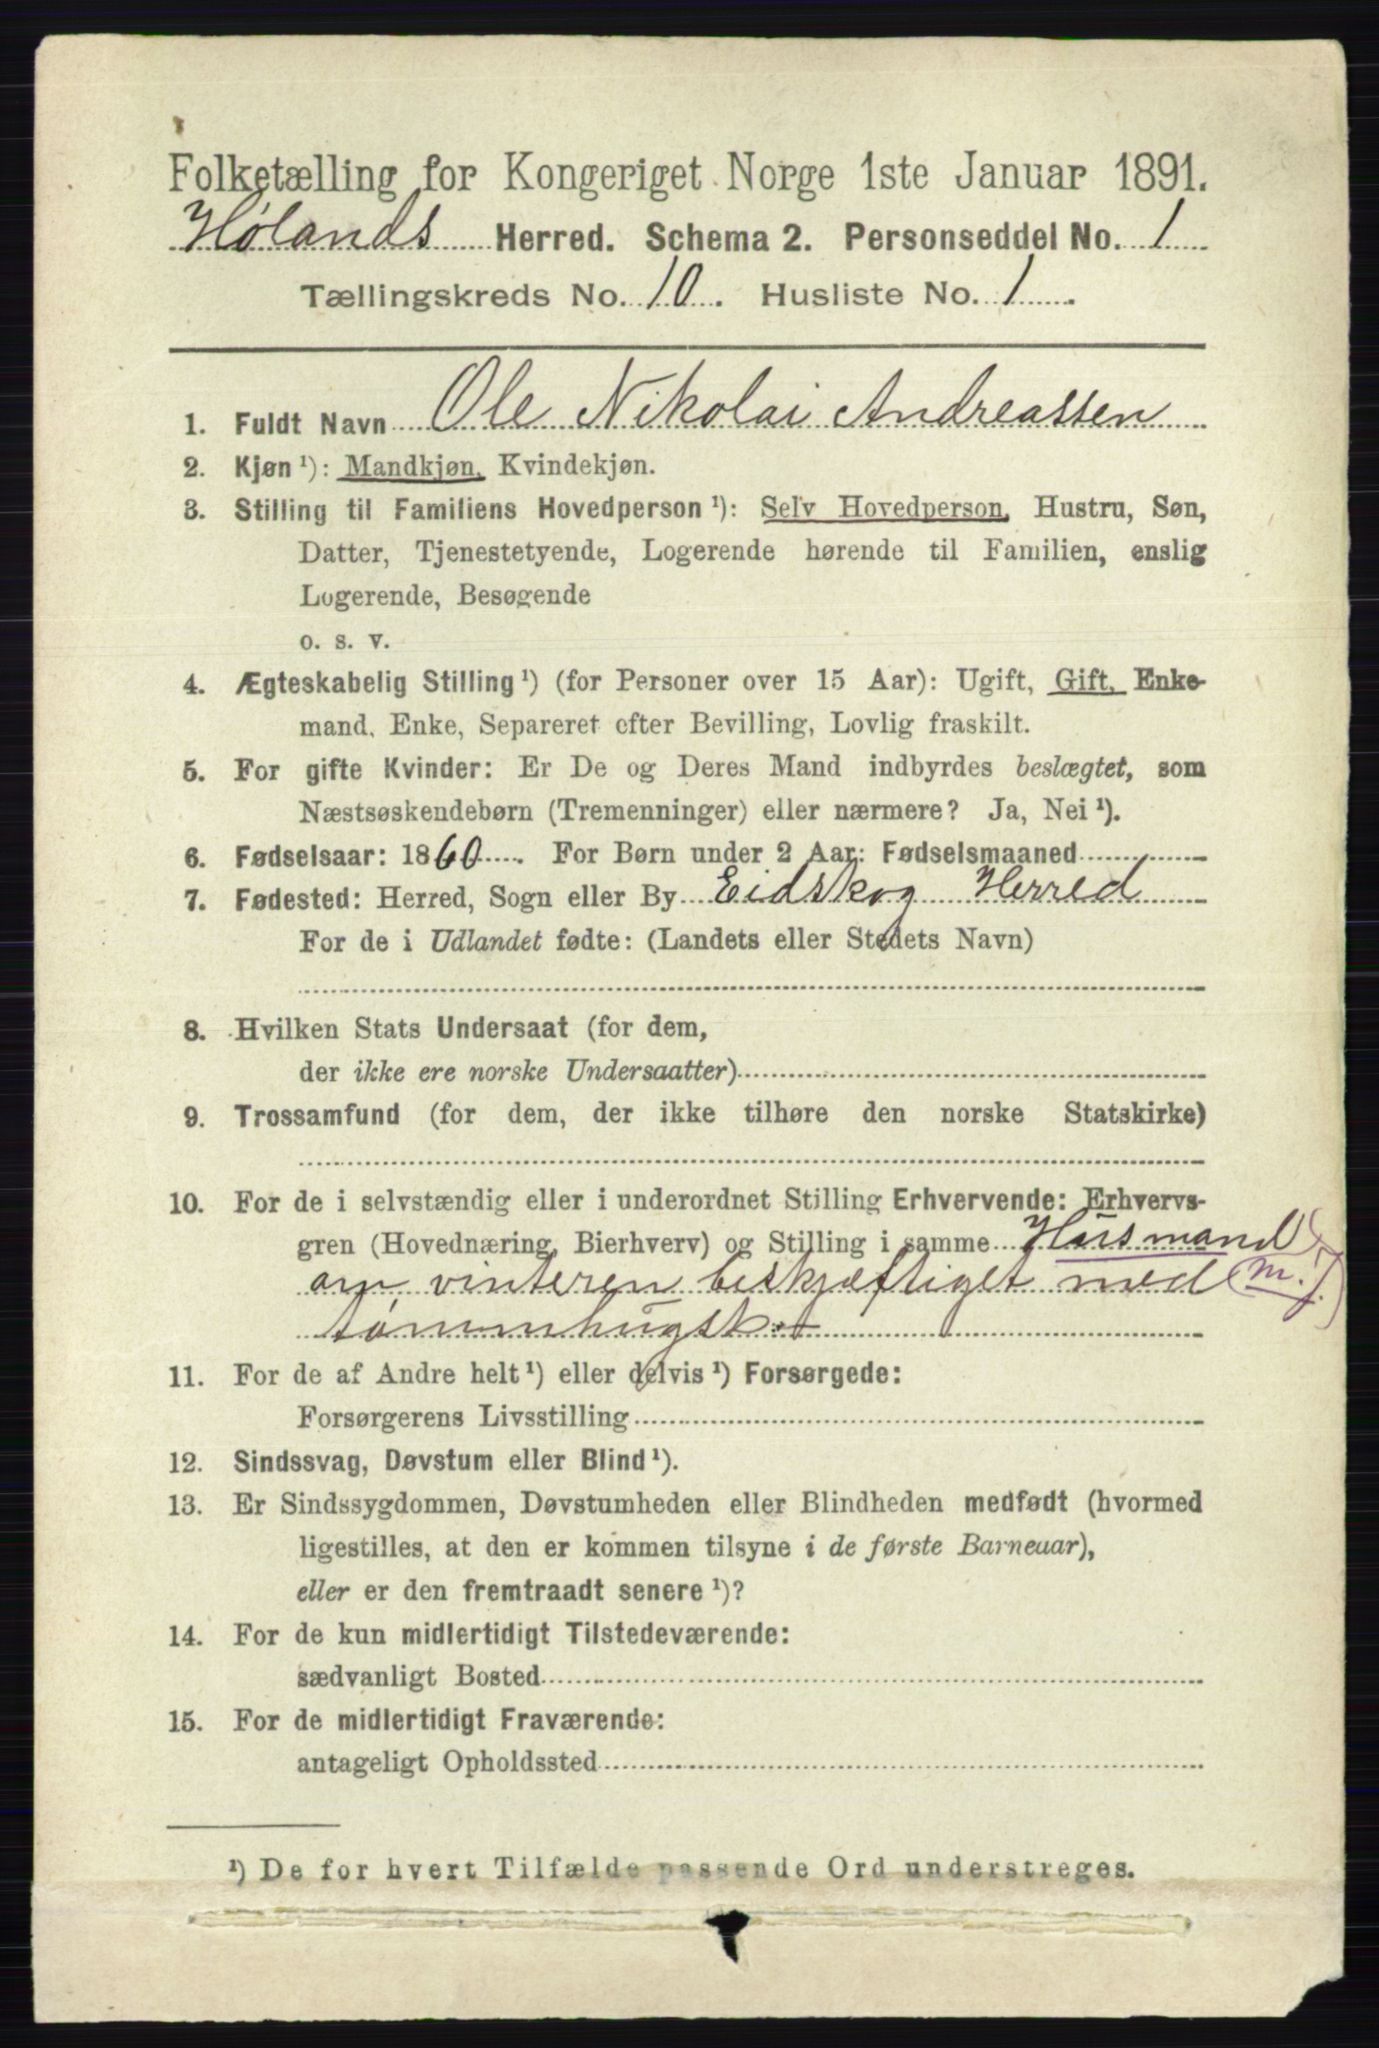 Folketælling for Kongeriget Norge 1ste Januar 1891.
Hølands Herred. Schema 2. Personseddel No. 1
Tællingskreds No. 10. Husliste No. 1.
1. Fuldt Navn Ole Nikolai Andreassen
2. Kjøn ¹): Mandkjøn, Kvindekjøn.
3. Stilling til Familiens Hovedperson ¹): Selv Hovedperson, Hustru, Søn,
Datter, Tjenestetyende, Logerende hørende til Familien, enslig
Logerende, Besøgende
o. s. v.
4. Ægteskabelig Stilling ¹) (for Personer over 15 Aar): Ugift, Gift, Enke-
mand, Enke, Separeret efter Bevilling, Lovlig fraskilt.
5. For gifte Kvinder: Er De og Deres Mand indbyrdes beslægtet, som
Næstsøskendebørn (Tremenninger) eller nærmere? Ja, Nei ¹).
6. Fødselsaar: 1860. For Børn under 2 Aar: Fødselsmaaned
7. Fødested: Herred, Sogn eller By Eidskog Herred
For de i Udlandet fødte: (Landets eller Stedets Navn)
8. Hvilken Stats Undersaat (for dem,
der ikke ere norske Undersaatter)
9. Trossamfund (for dem, der ikke tilhøre den norske Statskirke)
10. For de i selvstændig eller i underordnet Stilling Erhvervende: Erhvervs-
gren (Hovednæring, Bierhverv) og Stilling i samme Husmand
om vinteren beskjæftiget med (m. j.)
tømmhugst
11. For de af Andre helt ¹) eller delvis ¹) Forsørgede:
Forsørgerens Livsstilling
12. Sindssvag, Døvstum eller Blind ¹).
13. Er Sindssygdommen, Døvstumheden eller Blindheden medfødt (hvormed
ligestilles, at den er kommen tilsyne i de første Barneaar),
eller er den fremtraadt senere ¹)?
14. For de kun midlertidigt Tilstedeværende:
sædvanligt Bosted
15. For de midlertidigt Fraværende:
antageligt Opholdssted
¹) De for hvert Tilfælde passende Ord understreges.